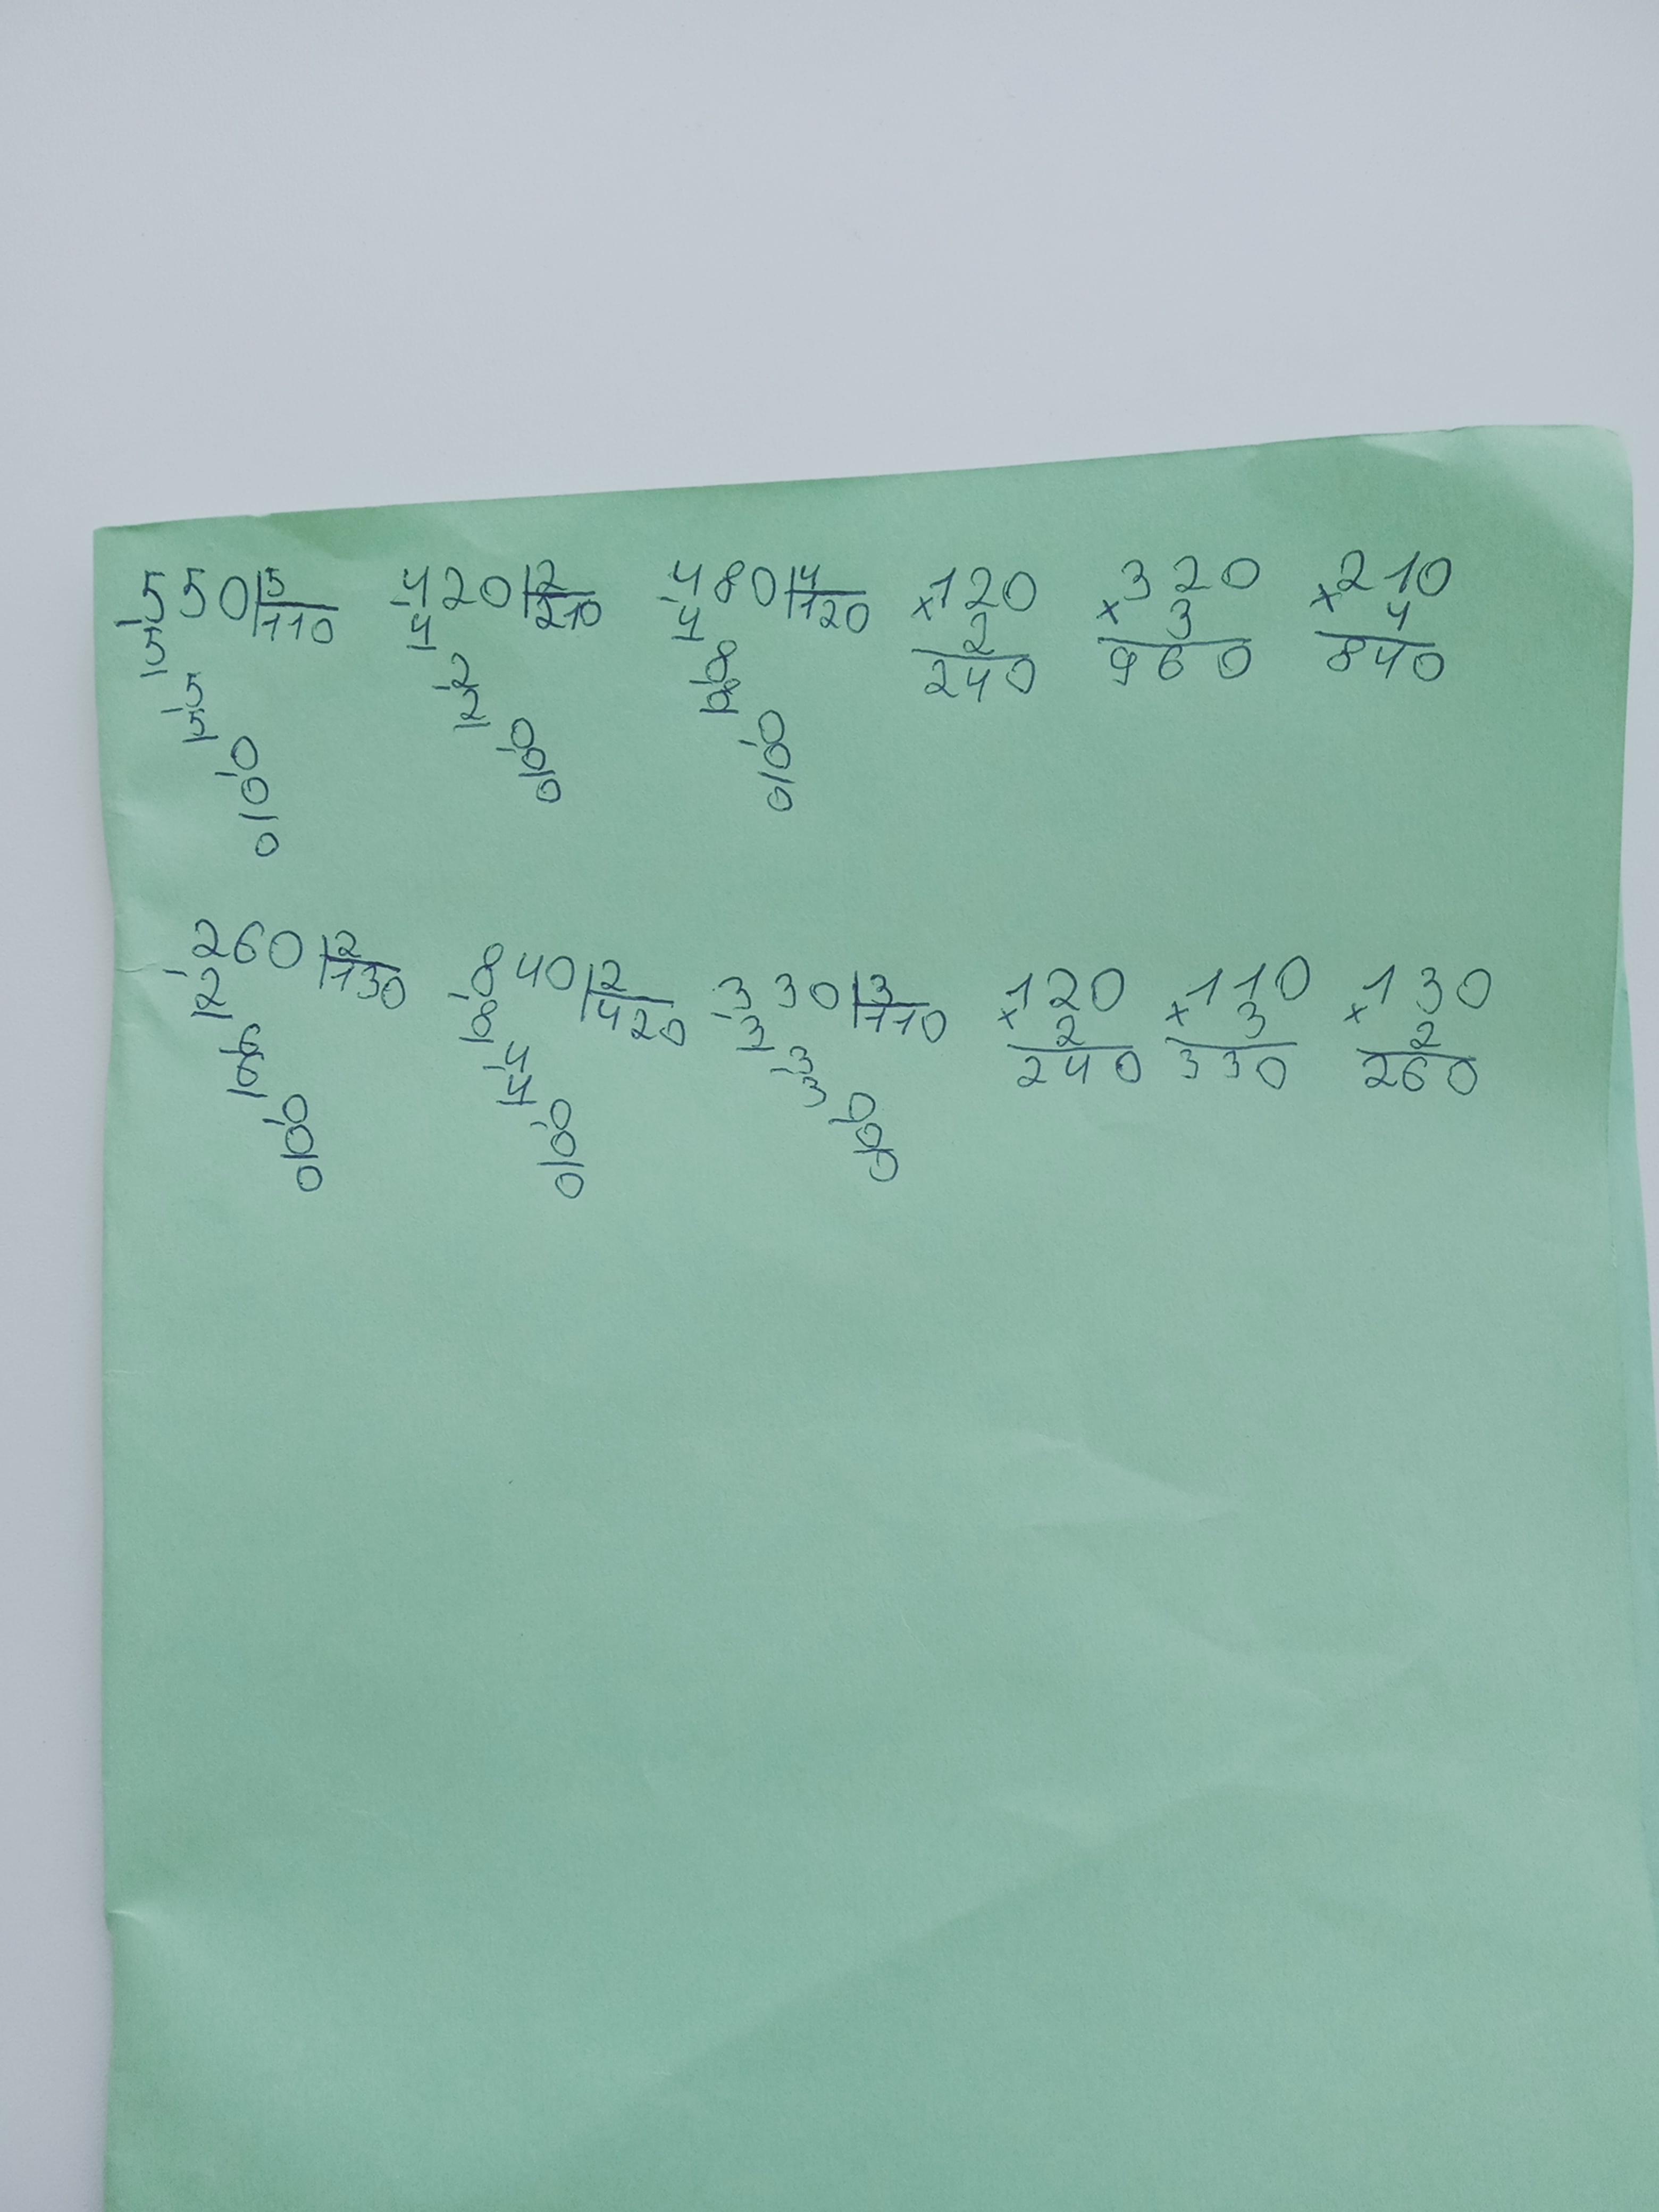 550 5 420 2 480 4 ×120 ×320 ×210
-5 110 -4 210 -4 120 2 3 4
-5 -2 -8 240 960 840
5 2 8
-0 -0 -0
0 0 0
0 0 0
260 2 840 2 330 3 ×120 ×110 ×130
-2 130 -8 420 -3 110 2 3 2
-6 -4 -3 240 330 260
6 4 3
-0 -0 -0
0 0 0
0 0 0